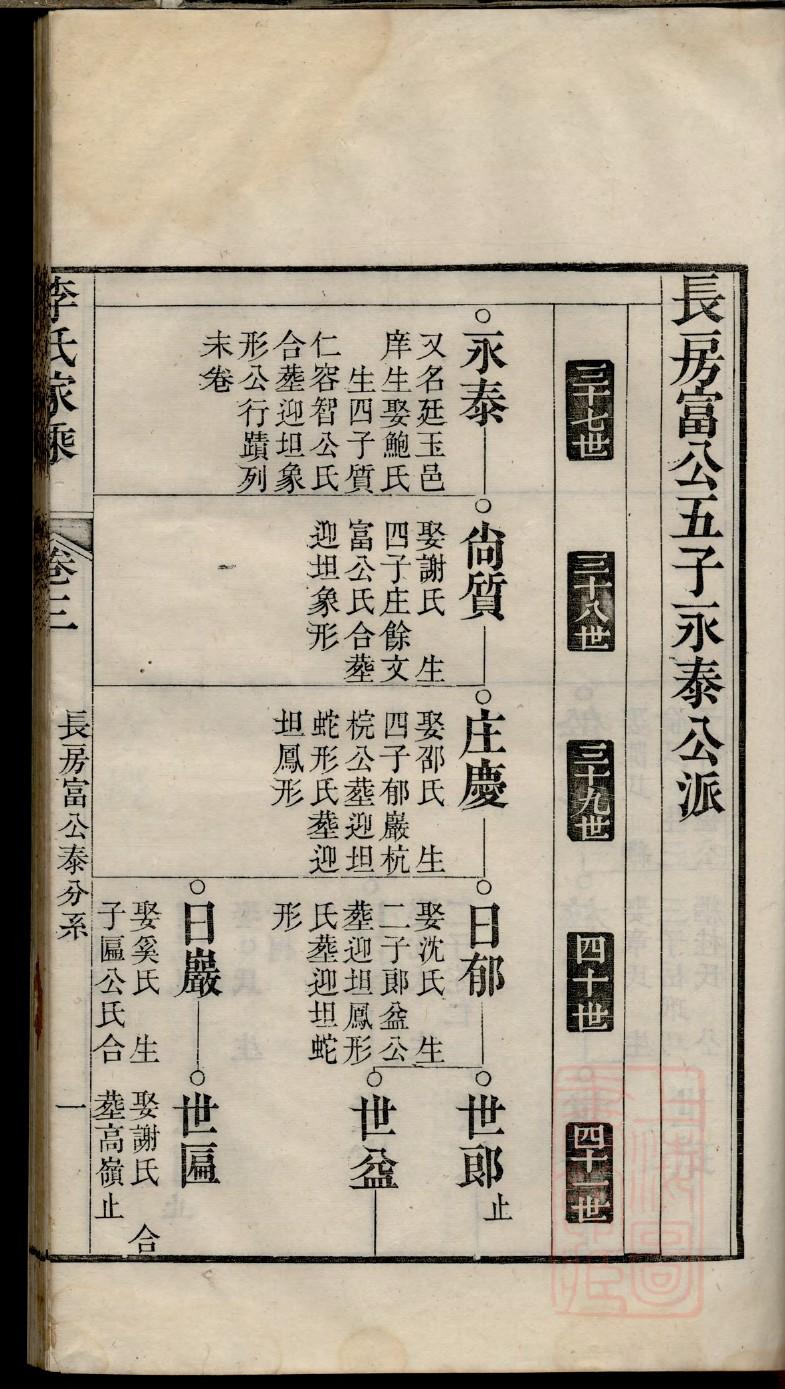 長房富公五子永泰公派
三十七世
三十八世
三十九世
四十世
四十一世
永泰
又名廷玉邑
庠生娶鮑氏
生四子質
仁容智公氏
合塟迎坦象
形公行蹟列
末卷
尙質
娶謝氏 生
四子庄餘文
富公氏合塟
迎坦象形
庄慶
娶邵氏 生
四子郁巖杭
梡公塟迎坦
蛇形氏塟迎
坦鳳形
日郁
娶沈氏 生
二子郎益公
塟迎坦鳳形
氏塟迎坦蛇
形
世郎
止
世益
日巖
娶奚氏 生
子匾公氏合
塟高嶺止
世匾
娶謝氏 合
李氏家乘
卷三
長房富公泰分系
一